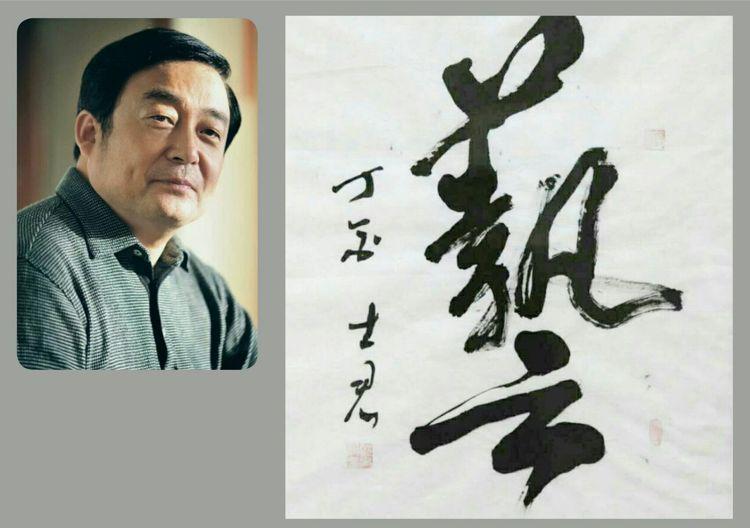 藝
丁亥 士君